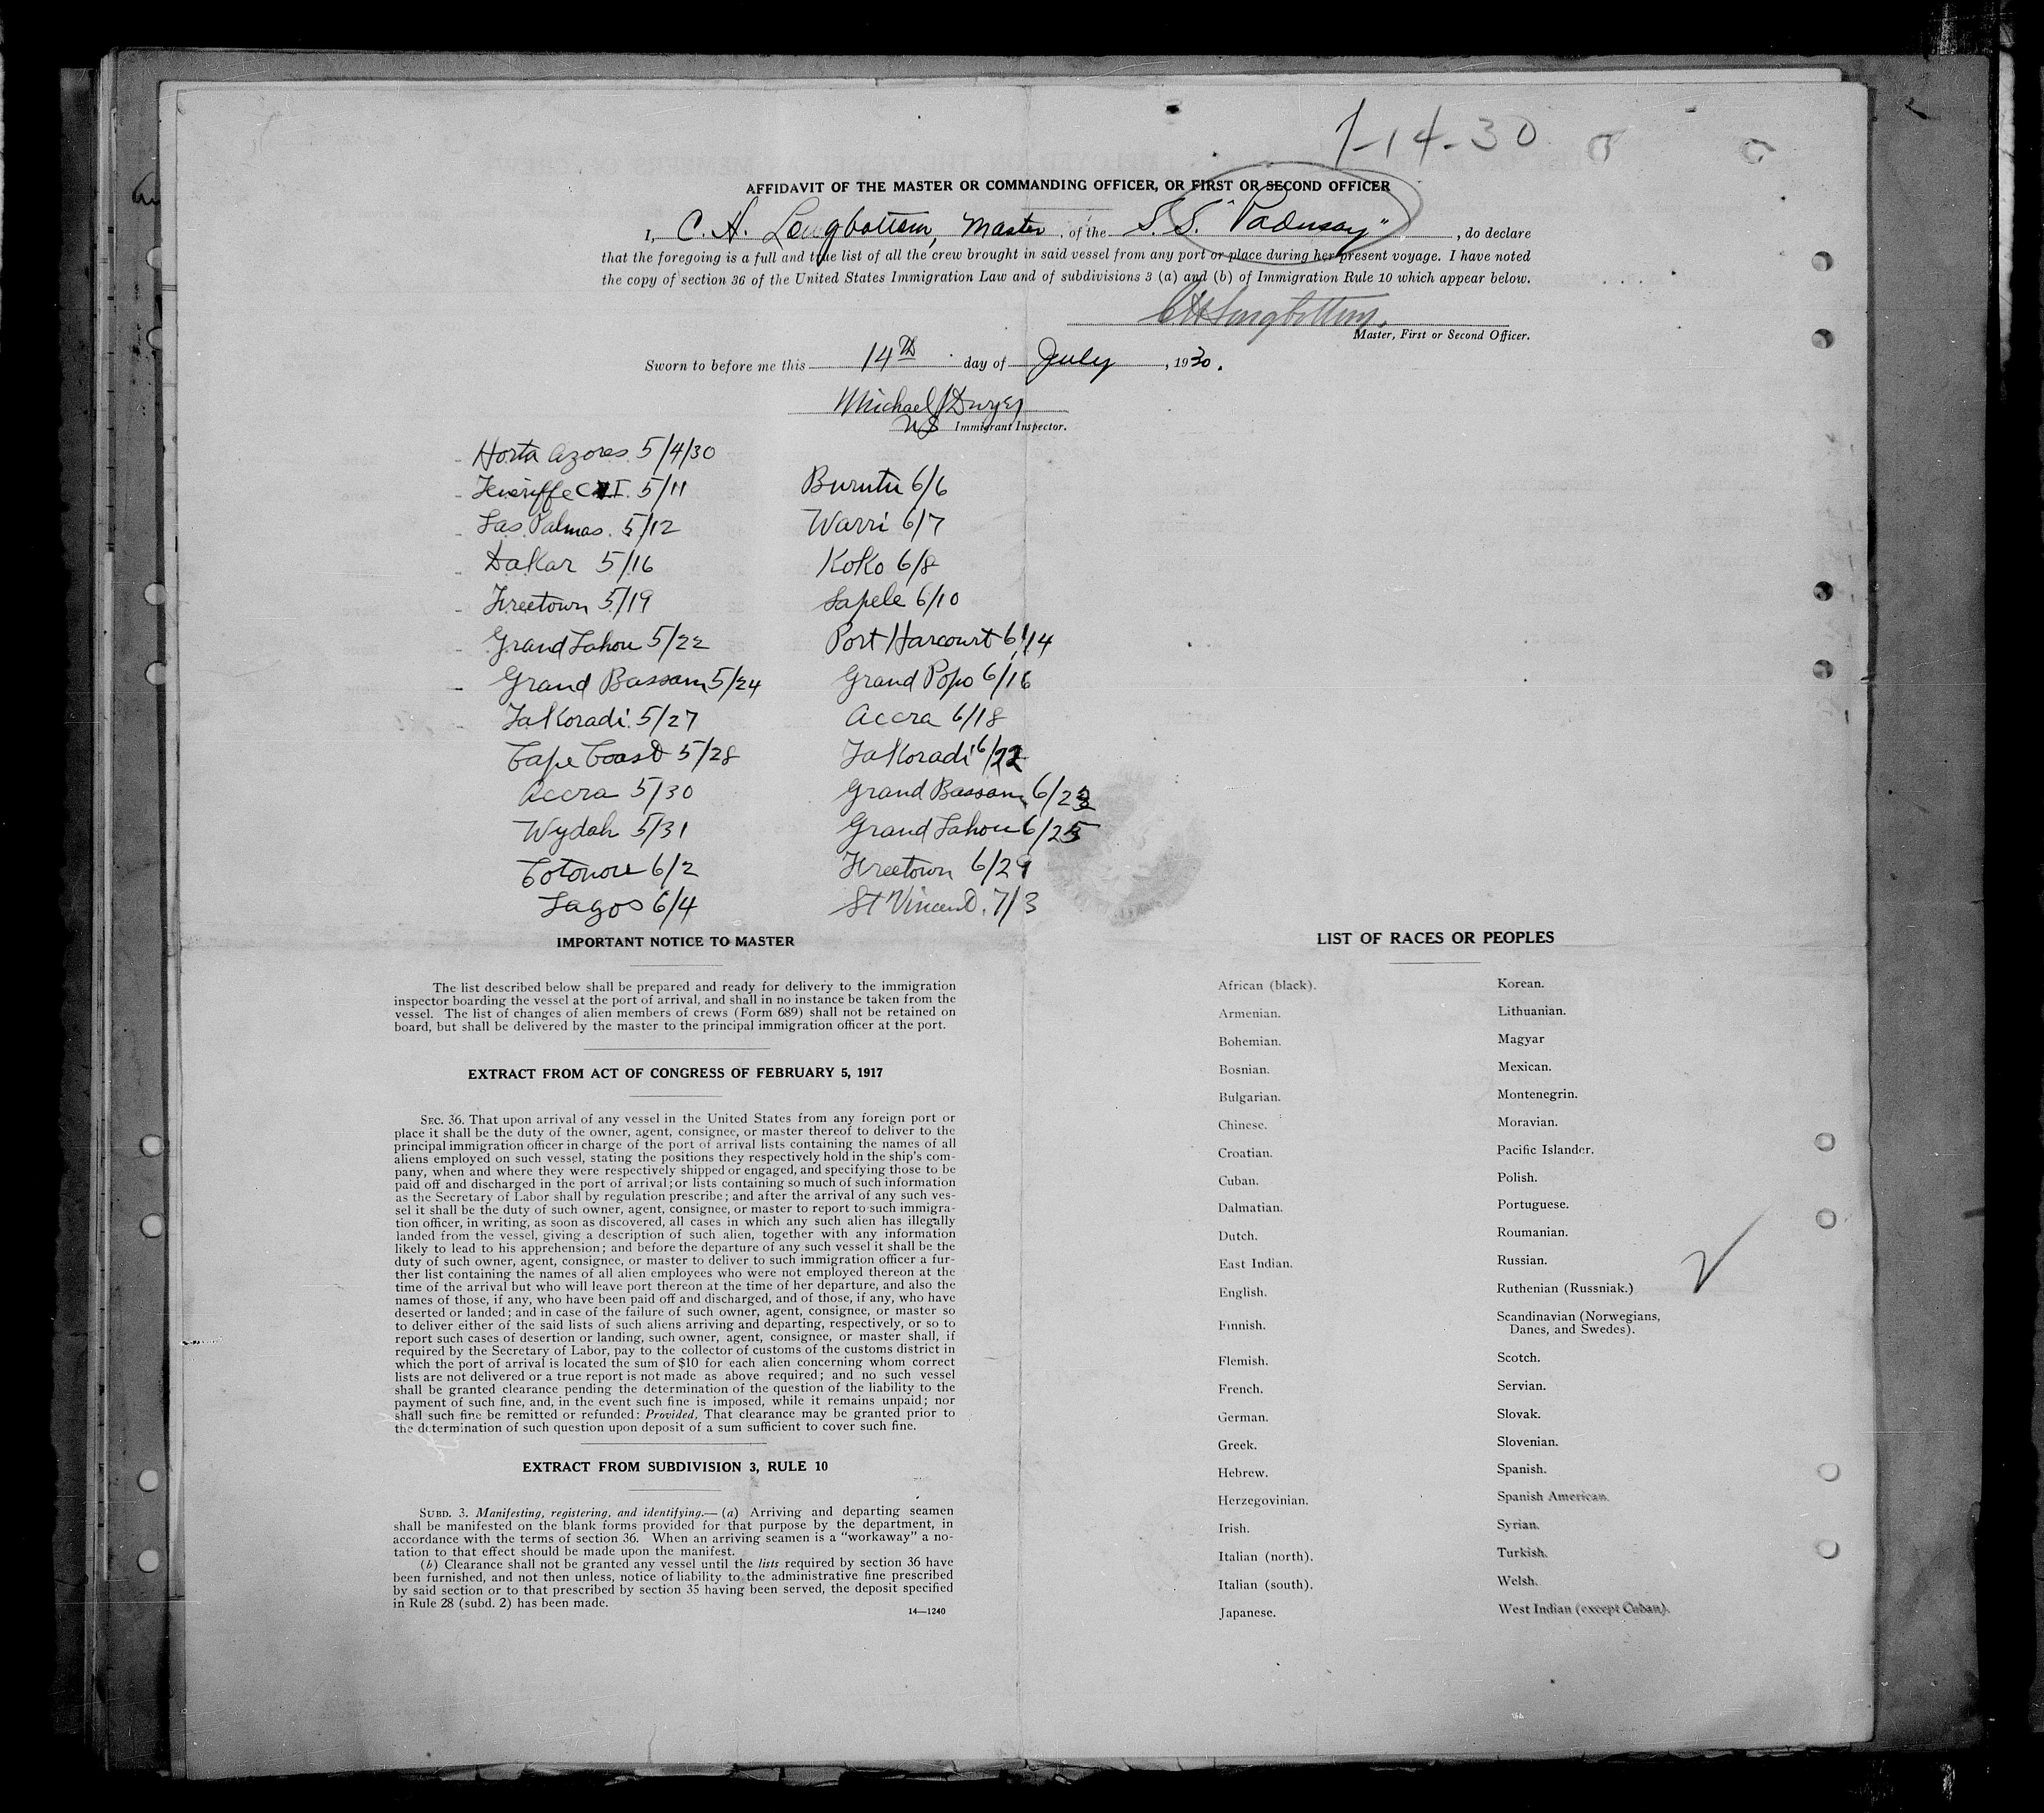 7-14-30
AFFIDAVIT OF THE MASTER OR COMMANDING OFFICER, OR FIRST OR SECOND OFFICER
I, C. H. Longbottom, Master, of the S.S. "Padnsay", do declare
that the foregoing is a full and true list of all the crew brought in said vessel from any port or place during her present voyage. I have noted
the copy of section 36 of the United States Immigration Law and of subdivisions 3 (a) and (b) of Immigration Rule 10 which appear below.
CH Longbottom.
Master, First or Second Officer.
Sworn to before me this 14th day of July, 1930.
Michael J Dwyer
US Immigrant Inspector.
Horta Azores 5/4/30
Teneriffe C I. 5/11
Las Palmas. 5/12
Dakar 5/16
Freetown 5/19
Grand Lahou 5/22
Grand Bassam 5/24
Takoradi 5/27
Cape Coast 5/28
Accra 5/30
Wydah 5/31
Cotonou 6/2
Lagos 6/4
Burutu 6/6
Warri 6/7
Koko 6/8
Sapele 6/10
Port Harcourt 6/14
Grand Popo 6/16
Accra 6/18
Takoradi 6/22
Grand Bassam 6/23
Grand Lahou 6/25
Freetown 6/29
St Vincent. 7/3
IMPORTANT NOTICE TO MASTER
The list described below shall be prepared and ready for delivery to the immigration
inspector boarding the vessel at the port of arrival, and shall in no instance be taken from the
vessel. The list of changes of alien members of crews (Form 689) shall not be retained on
board, but shall be delivered by the master to the principal immigration officer at the port.
EXTRACT FROM ACT OF CONGRESS OF FEBRUARY 5, 1917
SEC. 36. That upon arrival of any vessel in the United States from any foreign port or
place it shall be the duty of the owner, agent, consignee, or master thereof to deliver to the
principal immigration officer in charge of the port of arrival lists containing the names of all
aliens employed on such vessel, stating the positions they respectively hold in the ship's com-
pany, when and where they were respectively shipped or engaged, and specifying those to be
paid off and discharged in the port of arrival; or lists containing so much of such information
as the Secretary of Labor shall by regulation prescribe; and after the arrival of any such ves-
sel it shall be the duty of such owner, agent, consignee, or master to report to such immigra-
tion officer, in writing, as soon as discovered, all cases in which any such alien has illegally
landed from the vessel, giving a description of such alien, together with any information
likely to lead to his apprehension; and before the departure of any such vessel it shall be the
duty of such owner, agent, consignee, or master to deliver to such immigration officer a fur-
ther list containing the names of all alien employees who were not employed thereon at the
time of the arrival but who will leave port thereon at the time of her departure, and also the
names of those, if any, who have been paid off and discharged, and of those, if any, who have
deserted or landed; and in case of the failure of such owner, agent, consignee, or master so
to deliver either of the said lists of such aliens arriving and departing, respectively, or so to
report such cases of desertion or landing, such owner, agent, consignee, or master shall, if
required by the Secretary of Labor, pay to the collector of customs of the customs district in
which the port of arrival is located the sum of $10 for each alien concerning whom correct
lists are not delivered or a true report is not made as above required; and no such vessel
shall be granted clearance pending the determination of the question of the liability to the
payment of such fine, and, in the event such fine is imposed, while it remains unpaid; nor
shall such fine be remitted or refunded: Provided, That clearance may be granted prior to
the determination of such question upon deposit of a sum sufficient to cover such fine.
EXTRACT FROM SUBDIVISION 3, RULE 10
SUBD. 3. Manifesting, registering, and identifying.—(a) Arriving and departing seamen
shall be manifested on the blank forms provided for that purpose by the department, in
accordance with the terms of section 36. When an arriving seamen is a "workaway" a no-
tation to that effect should be made upon the manifest.
(b) Clearance shall not be granted any vessel until the lists required by section 36 have
been furnished, and not then unless, notice of liability to the administrative fine prescribed
by said section or to that prescribed by section 35 having been served, the deposit specified
in Rule 28 (subd. 2) has been made.
14—1240
LIST OF RACES OR PEOPLES
African (black).
Armenian.
Bohemian.
Bosnian.
Bulgarian.
Chinese.
Croatian.
Cuban.
Dalmatian.
Dutch.
East Indian.
English.
Finnish.
Flemish.
French.
German.
Greek.
Hebrew.
Herzegovinian.
Irish.
Italian (north).
Italian (south).
Japanese.
Korean.
Lithuanian.
Magyar
Mexican.
Montenegrin.
Moravian.
Pacific Islander.
Polish.
Portuguese.
Roumanian.
Russian.
Ruthenian (Russniak.)
Scandinavian (Norwegians,
Danes, and Swedes).
Scotch.
Servian.
Slovak.
Slovenian.
Spanish.
Spanish American.
Syrian.
Turkish.
Welsh.
West Indian (except Cuban).